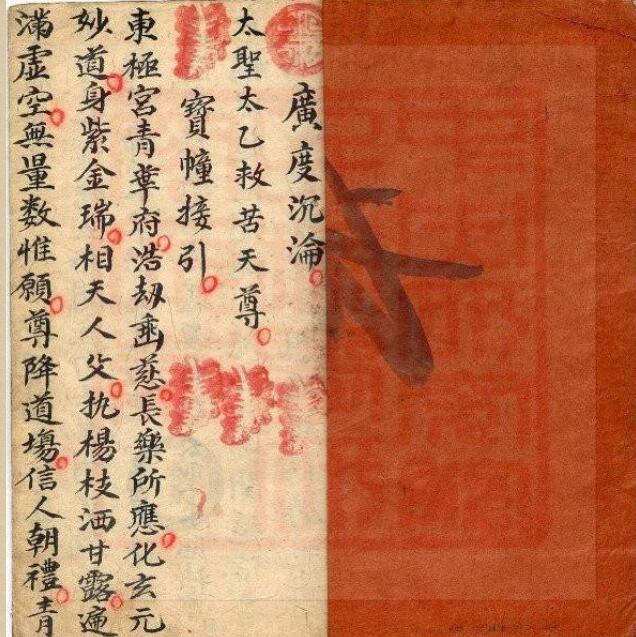 廣度沉淪
太聖太乙救苦天尊
寶幢接引
東極宮青華府浩劫垂慈長樂所應化玄元
妙道身紫金瑞相天人父执楊枝洒甘露遍
滿虛空無量数惟願尊降道場信人朝禮青